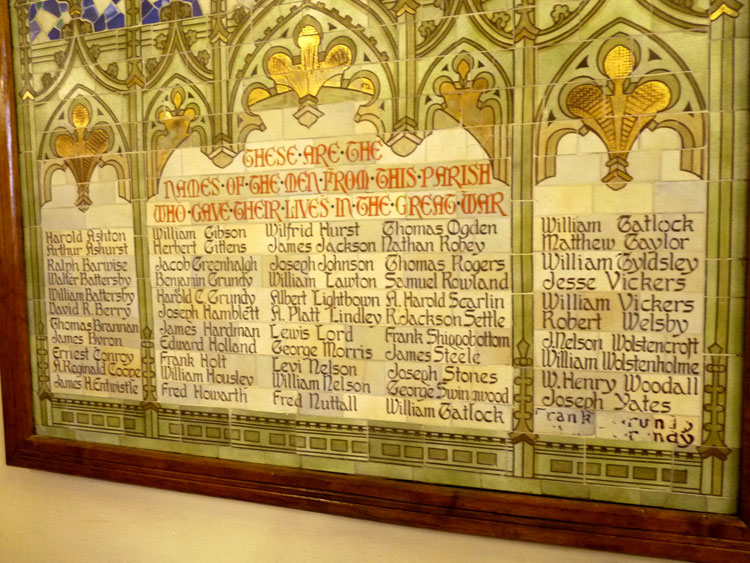 THESE ARE THE
NAMES OF THE MEN FROM THIS PARISH
WHO GAVE THEIR LIVES IN THE GREAT WAR
Harold Ashton
Arthur Ashurst
Ralph Barwise
Walter Battersby
William Battersby
David R. Berry
Thomas Brannan
James Byron
Ernest Conroy
A. Reginald Coope
James H. Entwistle
William Gibson
Herbert Gittens
Jacob Greenhalgh
Benjamin Grundy
Harold C. Grundy
Joseph Hamblett
James Hardman
Edward Holland
Frank Holt
William Housley
Fred Howarth
Wilfrid Hurst
James Jackson
Joseph Johnson
William Lawton
Albert Lightbown
A. Platt Lindley
Lewis Lord
George Morris
Levi Nelson
William Nelson
Fred Nuttall
Thomas Ogden
Nathan Robey
Thomas Rogers
Samuel Rowland
A. Harold Scarlin
R. Jackson Settle
Frank Shippobottom
James Steele
Joseph Stones
George Swinwood
William Tatlock
William Tatlock
Matthew Taylor
William Tyldsley
Jesse Vickers
William Vickers
Robert Welsby
J. Nelson Wolstencroft
William Wolstenholme
W. Henry Woodall
Joseph Yates
Frank